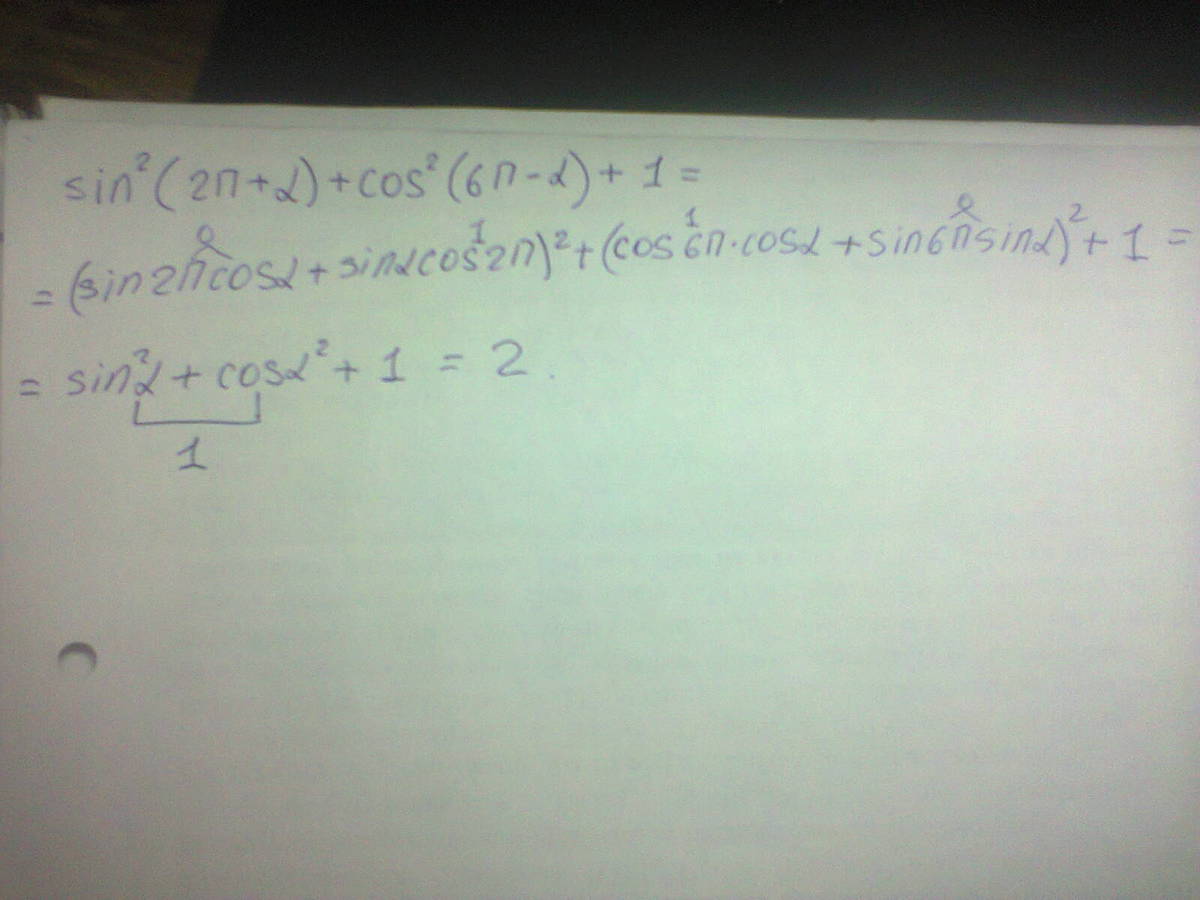 sin²(2π+α)+cos²(6π-α)+1=
=(sin2π⁰cosα+sinαcos¹2π)²+(cos¹6π·cosα+sin6π⁰sinα)²+1=
=sin²α+cosα²+1=2.
1